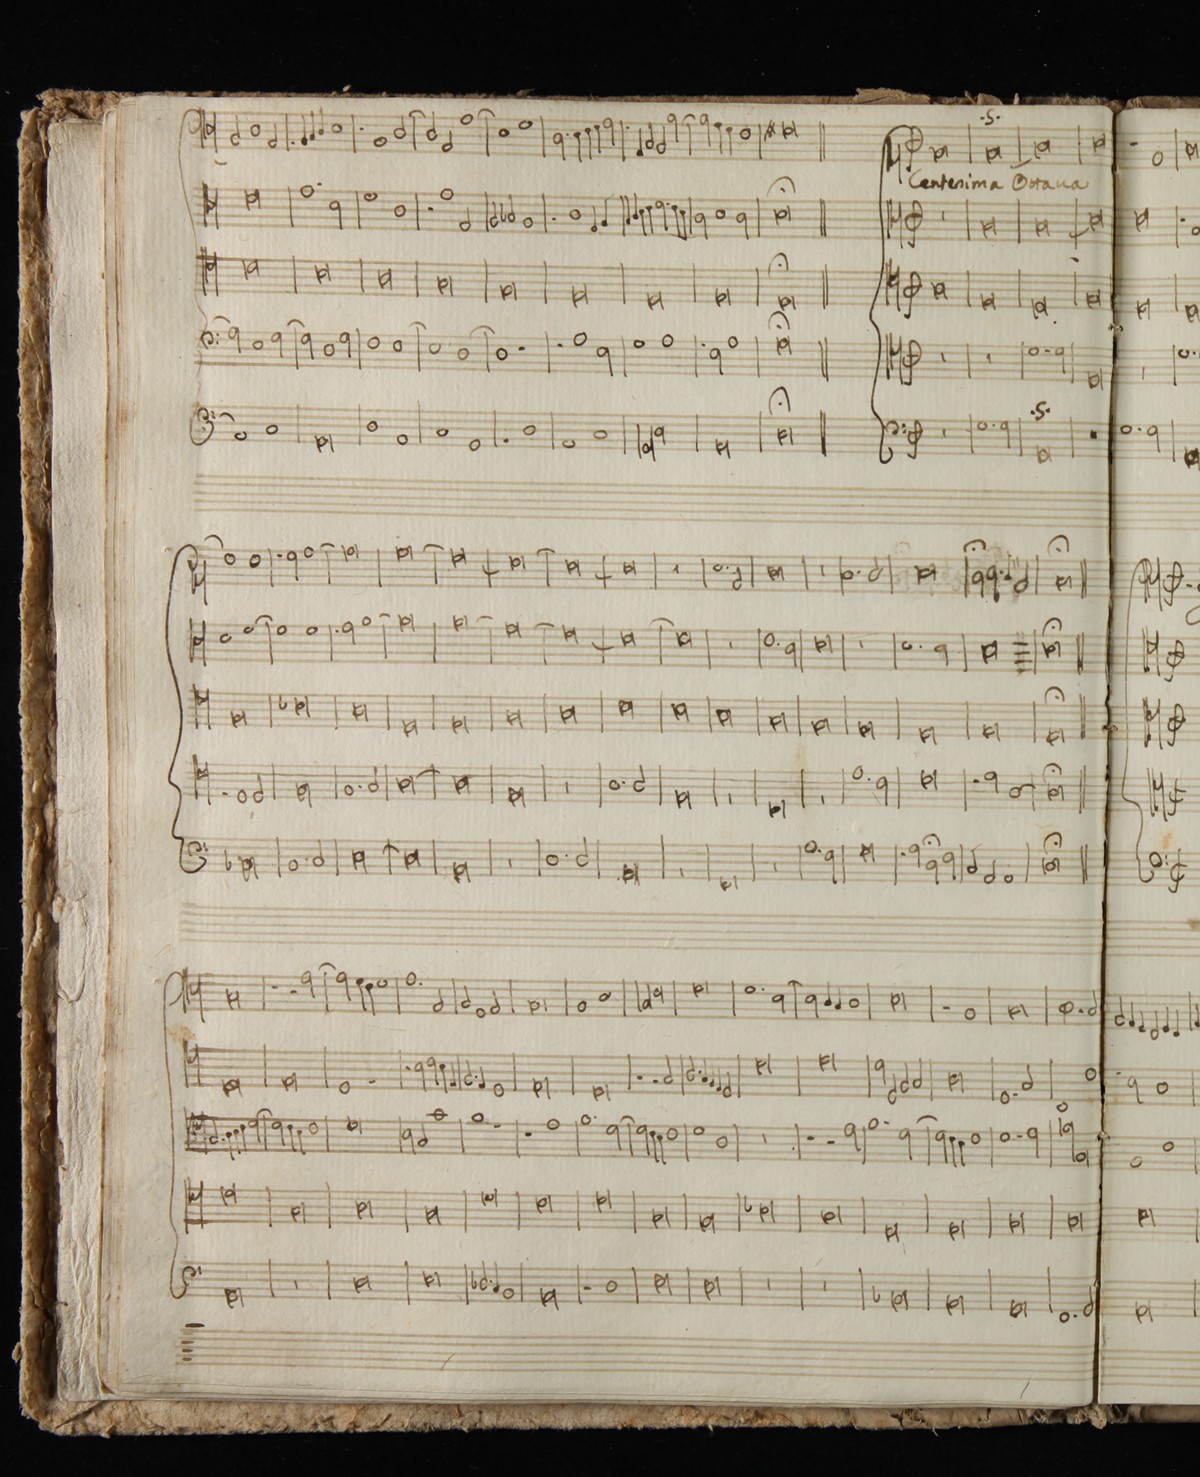 Centesima Octaua